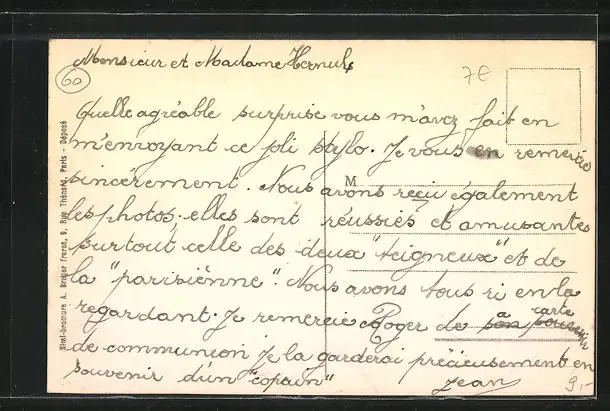 Monsieur et Madame Hernuls
60
7€
Quelle agréable surprise vous m'avez fait en
m'envoyant ce joli stylo. Je vous en remercie
sincèrement. Nous avons reçu également
M
les photos. elles sont réussiés et amusantes
surtout celle des deux "teigneux" et de
la "parisiènne". Nous avons tous ri en la
regardant. Je remercie Roger de sa carte
de communion je la garderai précieusement en
souvenir d'un "copain"
Jean
9,-
Simi-bromure A. Breger frères, 9, Rue Thénard, Paris - Déposé